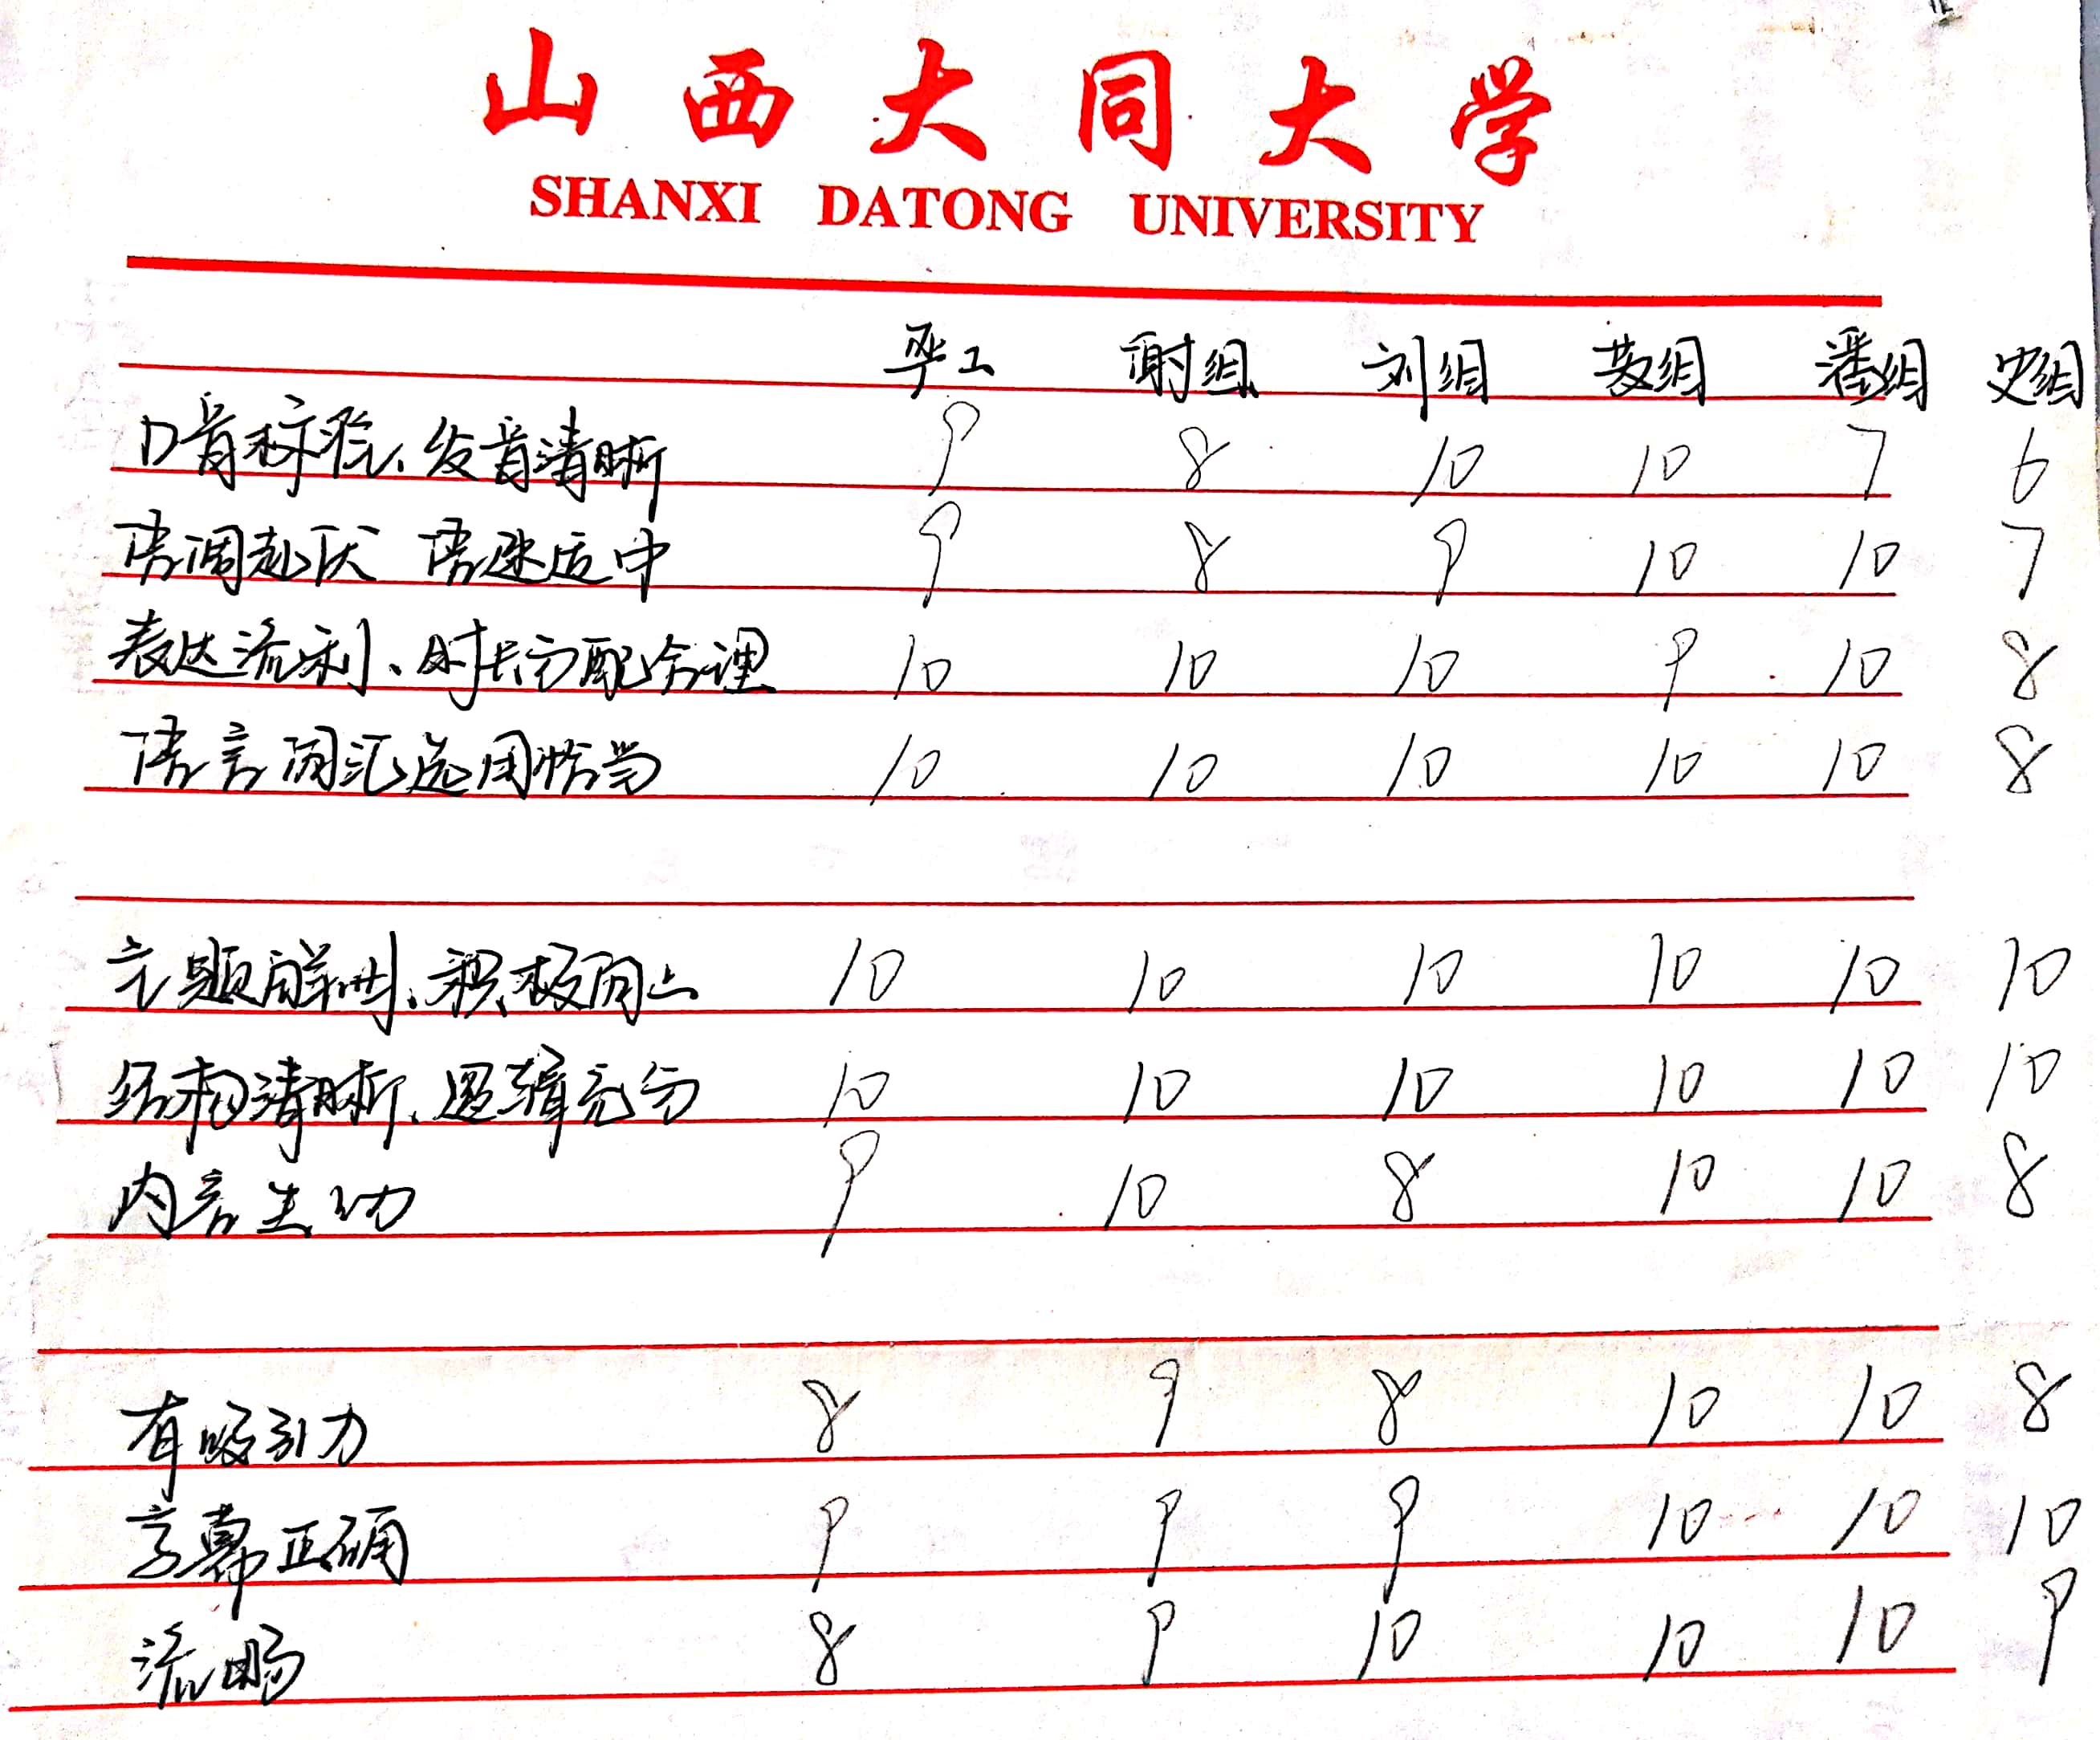 山西大同大学
SHANXI DATONG UNIVERSITY
谢组 刘组 黄组 潘组 史组
口音标准、发音清晰 9 8 10 10 7 6
语调起伏 语速适中 9 8 9 10 10 7
表达流利、时长分配合理 10 10 10 9 10 8
语言词汇选用恰当 10 10 10 10 10 8
主题鲜明、积极向上 10 10 10 10 10 10
结构清晰、逻辑充分 10 10 10 10 10 10
内容生动 9 10 8 10 10 8
有吸引力 8 9 8 10 10 8
字幕正确 9 9 9 10 10 10
流畅 8 9 10 10 10 9